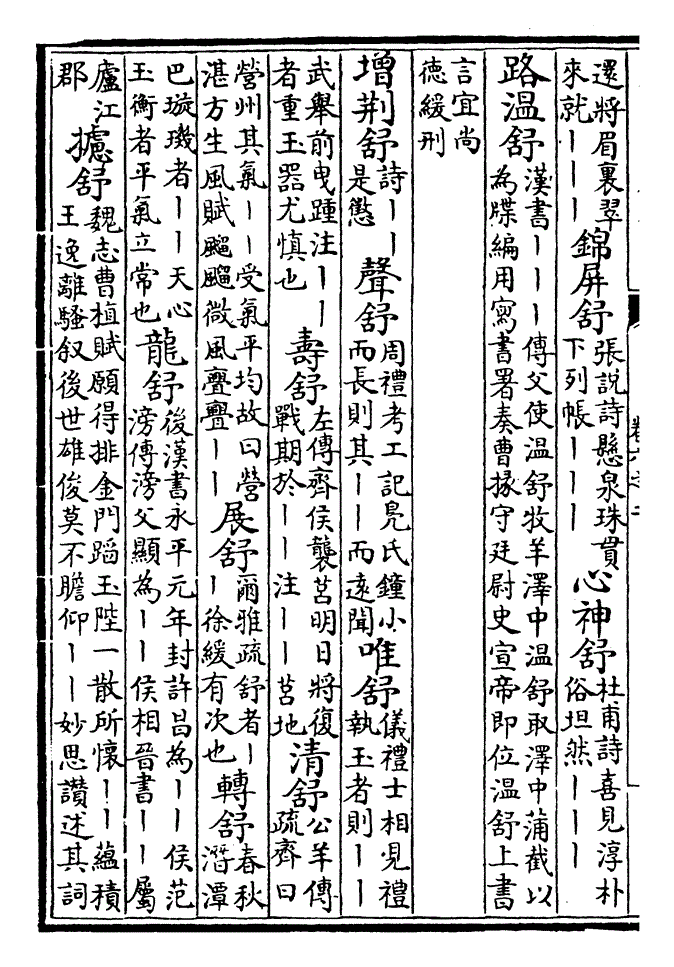 還將眉裏翠來就丨丨丨錦屏舒張說詩懸泉珠貫下列帳丨丨丨心神舒杜甫詩喜見淳朴俗坦然丨丨丨
路溫舒漢書丨丨丨傳父使溫舒牧羊澤中溫舒取澤中蒲截以為牒編用寫書署奏曹掾守廷尉史宣帝即位溫舒上書
言宜尚德緩刑
增荆舒詩丨丨是懲聲舒周禮考工記鳧氏鐘小而長則其丨丨而遠聞唯舒儀禮士相見禮執玉者則丨丨
武舉前曳踵注丨丨者重玉器尤慎也壽舒左傳齊侯襲莒明日將復戰期於丨丨注丨丨莒地清舒公羊傳疏齊曰
營州其氣丨丨受氣平均故曰營湛方生風賦颸颸微風亹亹丨丨展舒爾雅疏舒者丨丨徐緩有次也轉舒春秋潛潭
巴璇璣者丨丨天心玉衡者平氣立常也龍舒後漢書永平元年封許昌為丨丨侯范滂傳滂父顯為丨丨侯相晉書丨丨屬
廬江郡攄舒魏志曹植賦願得排金門蹈玉陛一散所懷丨丨蘊積王逸離騷叙後世雄俊莫不瞻仰丨丨妙思讚述其詞